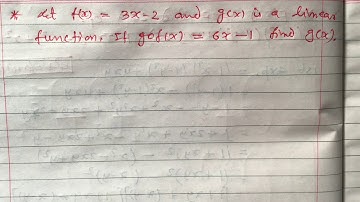 * Let f(x) = 3x-2 and g(x) is a linear
function. If gof(x) = 6x-1 find g(x).